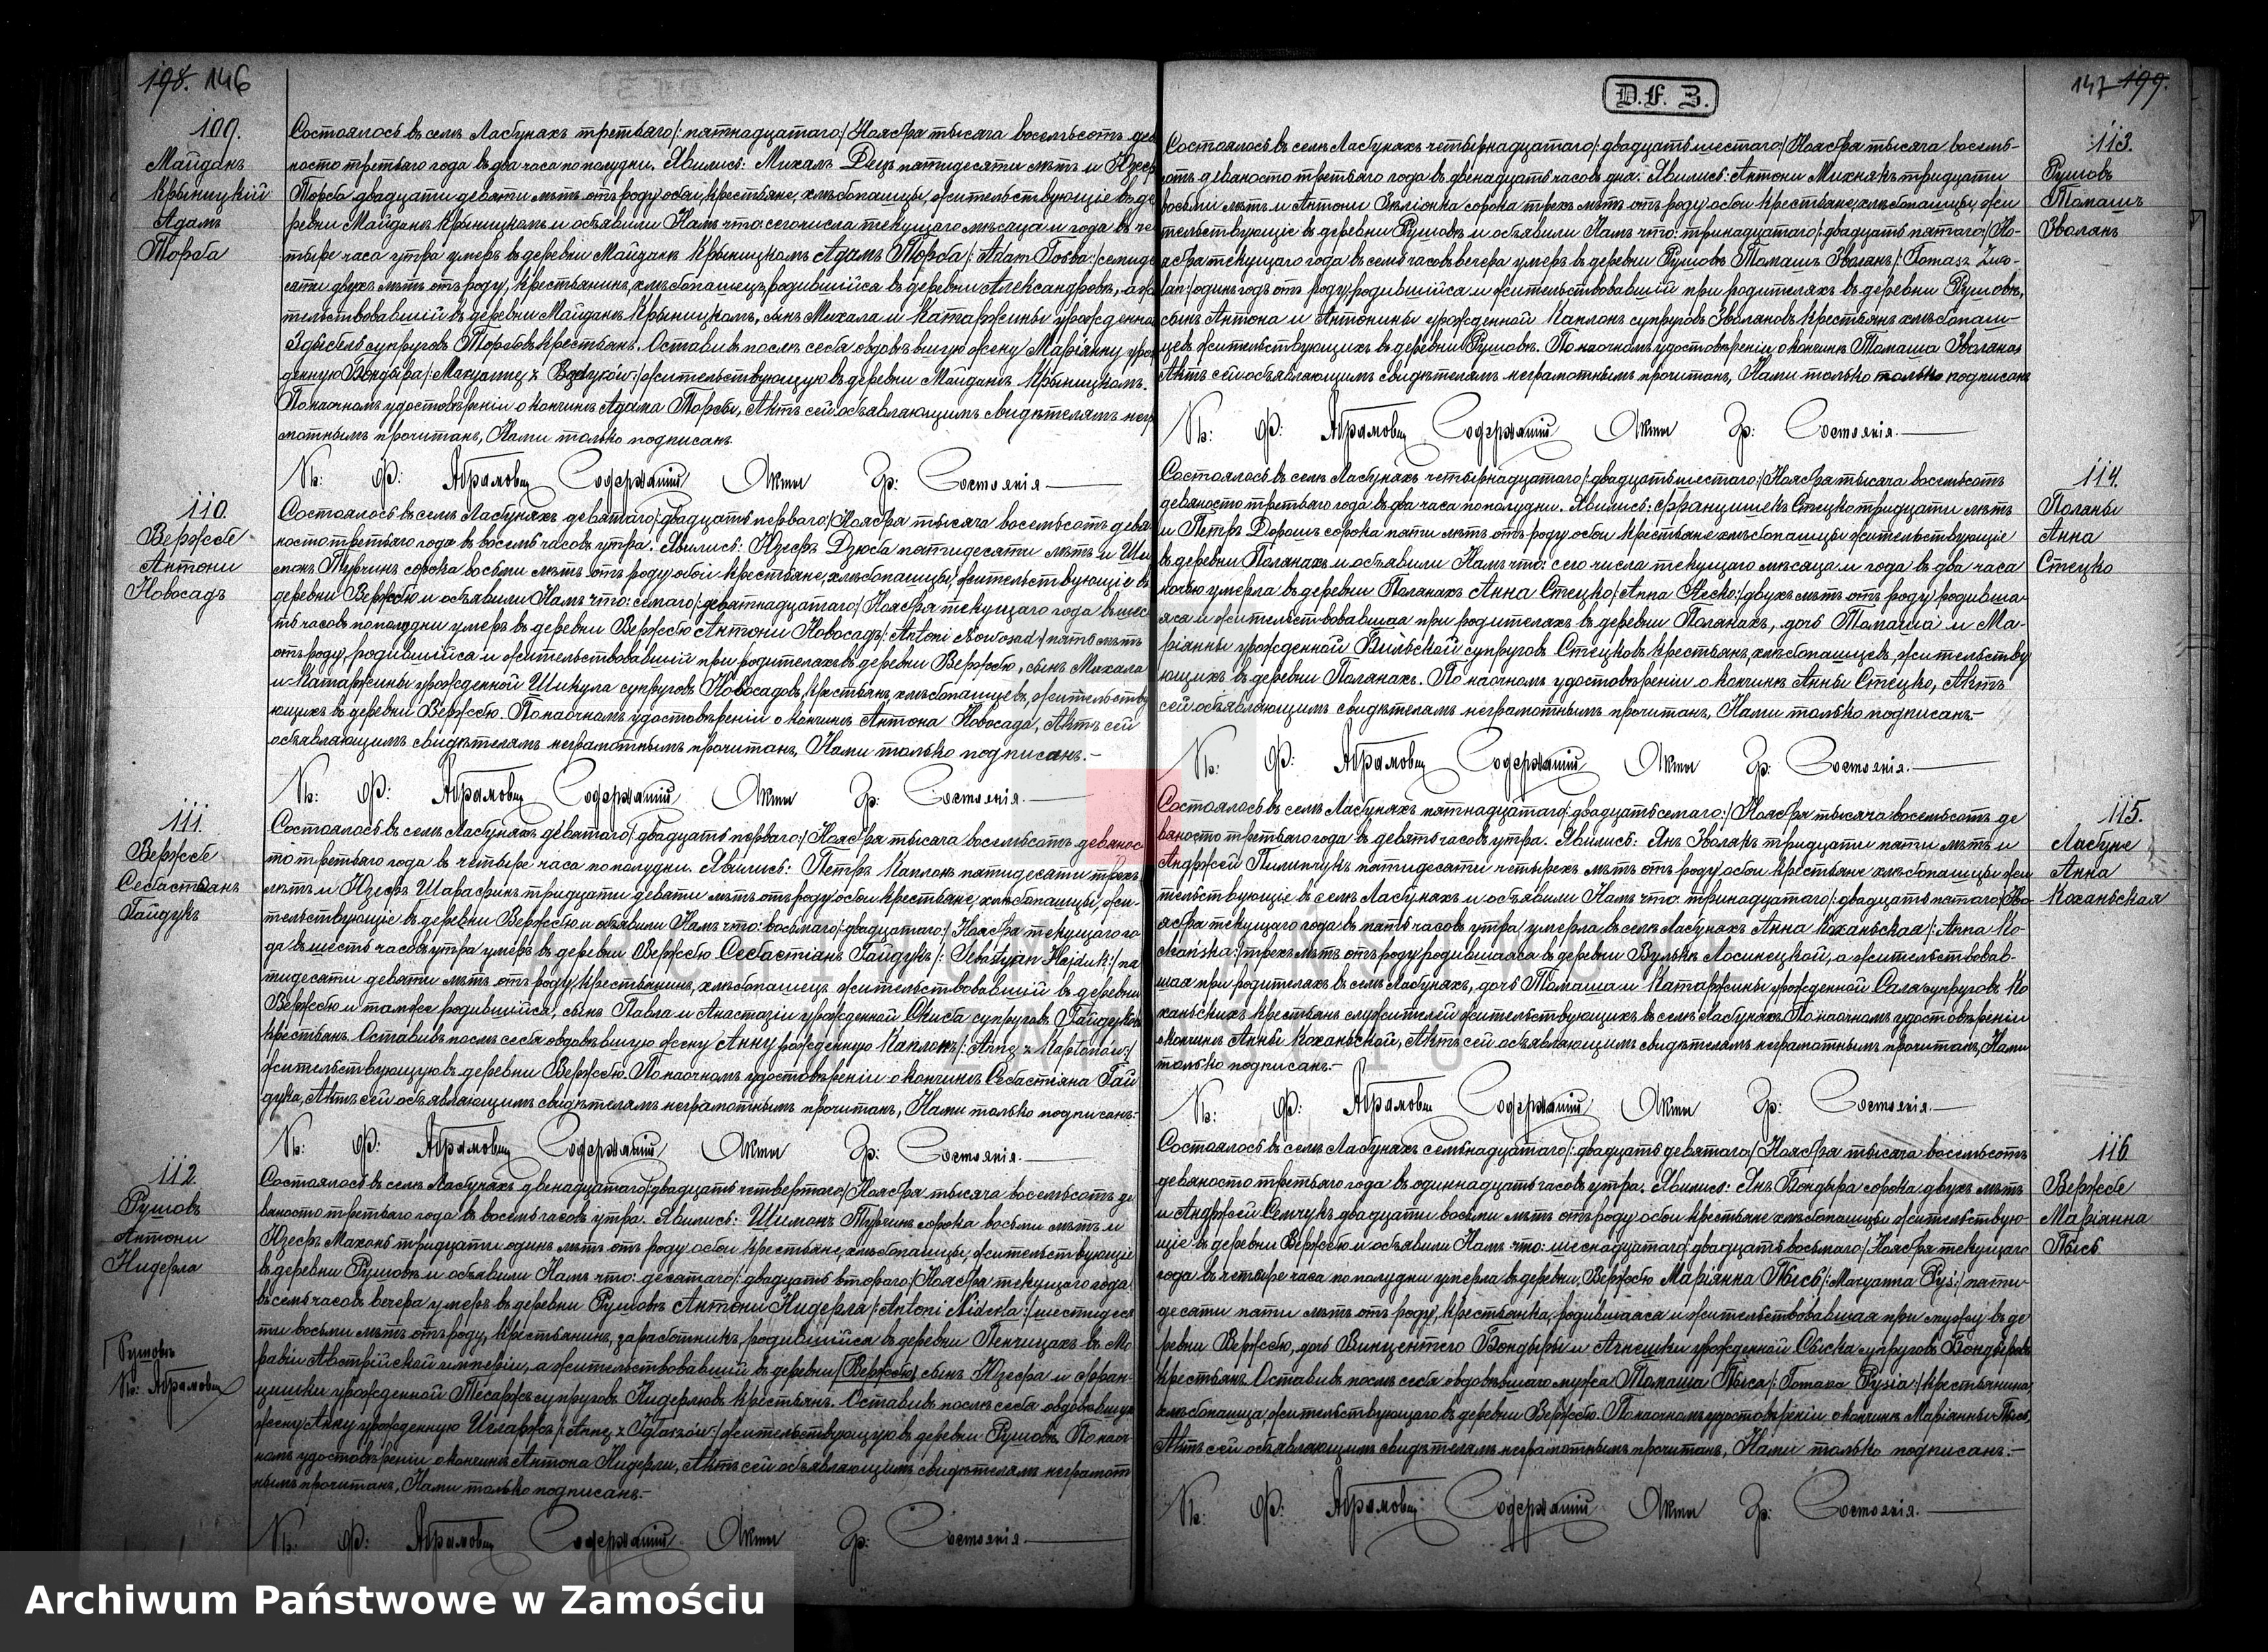 198. 146
109.
Майданъ
Крыницкій
Адамъ
Торба
Состоялось въ селѣ Лабуняхъ третьяго/:пятнадцатаго:/Ноября тысяча восемьсотъ девя
носто третьяго года въ два часа по полудни. Явились: Михалъ Децъ пятидесяти лѣтъ и Юзефъ
Торба двадцати девяти лѣтъ отъ роду обои, крестьяне, хлѣбопашцы, жительствующіе въ де
ревни Майданѣ Крыницкомъ и объявили Намъ что: сего числа текущаго мѣсяца и года въ че
тыре часа утра умеръ въ деревни Майданѣ Крыницкомъ Адамъ Торба/:Adam Torba:/семиде
сяти двухъ лѣтъ отъ роду, крестьянинъ, хлѣбопашецъ, родившійся въ деревни Александровкѣ, а жи
тельствовавшій въ деревни Майданѣ Крыницкомъ, сынъ Михала и Катаржины урожденной
супруговъ Торбовъ крестьянъ. Оставивъ послѣ себя овдовѣвшую жену Маріянну урож
денную Бондыра/:Maryannę z Bondyrów:/жительствующую въ деревни Майданѣ Крыницкомъ.
По наочномъ удостовѣреніи о кончинѣ Адама Торбы, Актъ сей объявляющимъ свидѣтелямъ негра
мотнымъ прочитанъ, Нами только подписанъ
Кс: Ф: Абрамовичъ Содержащій Акты Гр: Состоянія.
110.
Вержбе
Антони
Новосадъ
Состоялось въ селѣ Лабуняхъ девятаго/:двадцать перваго:/Ноября тысяча восемьсотъ девя
носто третьяго года въ восемь часовъ утра. Явились: Юзефъ Дзюба пятидесяти лѣтъ и Ши
монъ Тубчинъ сорока восьми лѣтъ отъ роду обои крестьяне, хлѣбопашцы, жительствующіе въ
деревни Вержбю и объявили Намъ что: семаго/:девятнадцатаго:/Ноября текущаго года въ шес
ть часовъ пополудни умеръ въ деревни Вержбю Антони Новосадъ/:Antoni Nowosad:/пять лѣтъ
отъ роду, родившійся и жительствовавшій при родителяхъ въ деревни Вержбю, сынъ Михала
и Катаржины урожденной Шикула супруговъ Новосадовъ, крестьянъ, хлѣбопашцевъ, жительству
ющихъ въ деревни Вержбю. По наочномъ удостовѣреніи о кончинѣ Антона Новосада, Актъ сей
объявляющимъ свидѣтелямъ неграмотнымъ прочитанъ, Нами только подписанъ.-
Кс: Ф: Абрамовичъ Содержащій Акты Гр: Состоянія.
111.
Вержбе
Себастьянъ
Гайдукъ
Состоялось въ селѣ Лабуняхъ девятаго/:двадцать перваго:/Ноября тысяча восемьсотъ девянос
то третьяго года въ четыре часа по полудни. Явились: Петръ Каплонъ пятидесяти трехъ
лѣтъ и Юзефъ Шарафинъ тридцати девяти лѣтъ отъ роду обои крестьяне, хлѣбопашцы, жи-
тельствующіе въ деревни Вержбю и объявили Намъ что: восьмаго/:двадцатаго:/Ноября текущаго го
да въ шесть часовъ утра умеръ въ деревни Вержбю Себастіанъ Гайдукъ/:Sebastyan Hajduk:/пя
тидесяти девяти лѣтъ отъ роду, крестьянинъ, хлѣбопашецъ жительствовавшій въ деревни
Вержбю и тамже родившійся, сынъ Павла и Анастазіи урожденной Скиба супруговъ Гайдуковъ
крестьянъ. Оставивъ послѣ себя овдовѣвшую жену Анну рожденную Каплонъ/:Annę z Kapłonów:/
жительствующую въ деревни Вержбю. По наочномъ удостовѣреніи о кончинѣ Себастіяна Гай
дука, Актъ сей объявляющимъ свидѣтелямъ неграмотнымъ прочитанъ, Нами только подписанъ:-
Кс: Ф: Абрамовичъ Содержащій Акты Гр: Состоянія.
112.
Рушовъ
Антони
Нидерла
Состоялось въ селѣ Лабуняхъ двенадцатаго/:двадцать четвертаго:/Ноября тысяча восемьсотъ де
вяносто третьяго года въ восемь часовъ утра. Явились: Шимонъ Тубчинъ сорока восьми лѣтъ и
Юзефъ Махонь тридцати одинъ лѣтъ отъ роду обои крестьяне, хлѣбопашцы, жительствующіе
въ деревни Рушовѣ и объявили Намъ что: десятаго/:двадцать втораго:/Ноября текущаго года
въ семь часовъ вечера умеръ въ деревни Рушовѣ Антони Нидерла/:Antoni Niderla:/шестидеся
ти восьми лѣтъ отъ роду, крестьянинъ, заработникъ, родившійся въ деревни Пенчицахъ въ Мо
равіи Австрійской имперіи, а жительствовавшій въ деревни /Вержбю/ сынъ Юзефа и Фран-
цишки урожденной Тесаржъ супруговъ Нидерловъ крестьянъ. Оставивъ послѣ себя овдовѣвшую
жену Анну урожденную Игларжъ/:Annę z Iglarzów:/жительствующую въ деревни Рушовѣ. По наоч
номъ удостовѣреніи о кончинѣ Антона Нидерли, Актъ сей объявляющимъ свидѣтелямъ неграмот
нымъ прочитанъ, Нами только подписанъ.-
Рушовѣ
Кс: Абрамовичъ
Кс: Ф: Абрамовичъ Содержащій Акты Гр: Состоянія.
D.F. 3.
147 199.
113.
Рушовъ
Томашъ
Зволянъ
Состоялось въ селѣ Лабуняхъ четырнадцатаго/:двадцать шестаго:/Ноября тысяча восемь-
сотъ девяносто третьяго года въ двенадцать часовъ дня. Явились: Антони Михнякъ тридцати
восьми лѣтъ и Антони Зѣліонка сорока трехъ лѣтъ отъ роду обои крестьяне хлѣбопашцы жи
тельствующіе въ деревни Рушовѣ и объявили Намъ что: тринадцатаго/:двадцать пятаго:/Но-
ября текущаго года въ семь часовъ вечера умеръ въ деревни Рушовѣ Томашъ Зволянъ/:Tomasz Zwo-
lan:/одинъ годъ отъ роду, родившійся и жительствовавшій при родителяхъ въ деревни Рушовѣ,
сынъ Антона и Антонины урожденной Каплонъ супруговъ Зволяновъ крестьянъ хлѣбопаш-
цевъ жительствующихъ въ деревни Рушовѣ. По наочномъ удостовѣреніи о кончинѣ Томаша Зволяна
Актъ сей объявляющимъ свидѣтелямъ неграмотнымъ прочитанъ, Нами только только подписанъ
Кс: Ф: Абрамовичъ Содержащій Акты Гр: Состоянія.
114.
Поляны
Анна
Стецко
Состоялось въ селѣ Лабуняхъ четырнадцатаго/:двадцать шестаго:/Ноября тысяча восемьсотъ
девяносто третьяго года въ два часа пополудни. Явились: Францишекъ Стецко тридцати лѣтъ
и Петръ Дорошъ сорока пяти лѣтъ отъ роду обои крестьяне хлѣбопашцы жительствующіе
въ деревни Полянахъ и объявили Намъ что: сего числа текущаго мѣсяца и года въ два часа
ночью умерла въ деревни Полянахъ Анна Стецко/:Anna Stecko:/двухъ лѣтъ отъ роду, родивша-
яся и жительствовавшая при родителяхъ въ деревни Полянахъ, дочь Томаша и Ма-
ріянны урожденной Вильской супруговъ Стецковъ крестьянъ, хлѣбопашцевъ, жительству
ющихъ въ деревни Полянахъ. По наочномъ удостовѣреніи о кончинѣ Анны Стецко, Актъ
сей объявляющимъ свидѣтелямъ неграмотнымъ прочитанъ, Нами только подписанъ.-
Кс: Ф: Абрамовичъ Содержащій Акты Гр: Состоянія.
115.
Лабуне
Анна
Коханьская
Состоялось въ селѣ Лабуняхъ пятнадцатаго/:двадцать семаго:/Ноября тысяча восемьсотъ де
вяносто третьяго года въ девять часовъ утра. Явились: Янъ Зволякъ тридцати пяти лѣтъ и
Анджей Пилипчукъ пятидесяти четырехъ лѣтъ отъ роду обои крестьяне хлѣбопашцы жи
тельствующіе въ селѣ Лабуняхъ и объявили Намъ что: тринадцатаго/:двадцать пятаго:/Но-
ября текущаго года въ пять часовъ утра умерла въ селѣ Лабуняхъ Анна Коханьская/:Anna Ko-
chańska:/трехъ лѣтъ отъ роду родившаяся въ деревни Вулькѣ Лосинецкой, а жительствовав-
шая при родителяхъ въ селѣ Лабуняхъ, дочь Томаша и Катаржины урожденной Сала супруговъ Ко
ханьскихъ крестьянъ служителей жительствующихъ въ селѣ Лабуняхъ. По наочномъ удостовѣреніи
о кончинѣ Анны Коханьской, Актъ сей объявляющимъ свидѣтелямъ неграмотнымъ прочитанъ, Нами
только подписанъ.-
Кс: Ф: Абрамовичъ Содержащій Акты Гр: Состоянія.
116
Вержбе
Маріянна
Пысь
Состоялось въ селѣ Лабуняхъ семьнадцатаго/:двадцать девятаго:/Ноября тысяча восемьсотъ
девяносто третьяго года въ одиннадцать часовъ утра. Явились: Янъ Бондыра сорока двухъ лѣтъ
и Анджей Семчукъ двадцати восьми лѣтъ отъ роду обои крестьяне хлѣбопашцы жительствую-
щіе въ деревни Вержбю и объявили Намъ что: шеснадцатаго/:двадцать восьмаго:/Ноября текущаго
года въ четыре часа по полудни умерла въ деревни Вержбю Маріянна Пысь/:Maryanna Pyś:/пяти-
десяти пяти лѣтъ отъ роду, крестьянка, родившаяся и жительствовавшая при мужу въ де
ревни Вержбю, дочь Винцентего Бондыры и Агнешки урожденной Сыска супруговъ Бондыровъ
крестьянъ. Оставивъ послѣ себя овдовѣвшаго мужа Томаша Пыся/:Tomasza Pysia:/крестьянина,
хлѣбопашца жительствующаго въ деревни Вержбю. По наочномъ удостовѣреніи о кончинѣ Маріянны Пысь,
Актъ сей объявляющимъ свидѣтелямъ неграмотнымъ прочитанъ, Нами только подписанъ.-
Кс: Ф: Абрамовичъ Содержащій Акты Гр: Состоянія.
Archiwum Państwowe w Zamościu